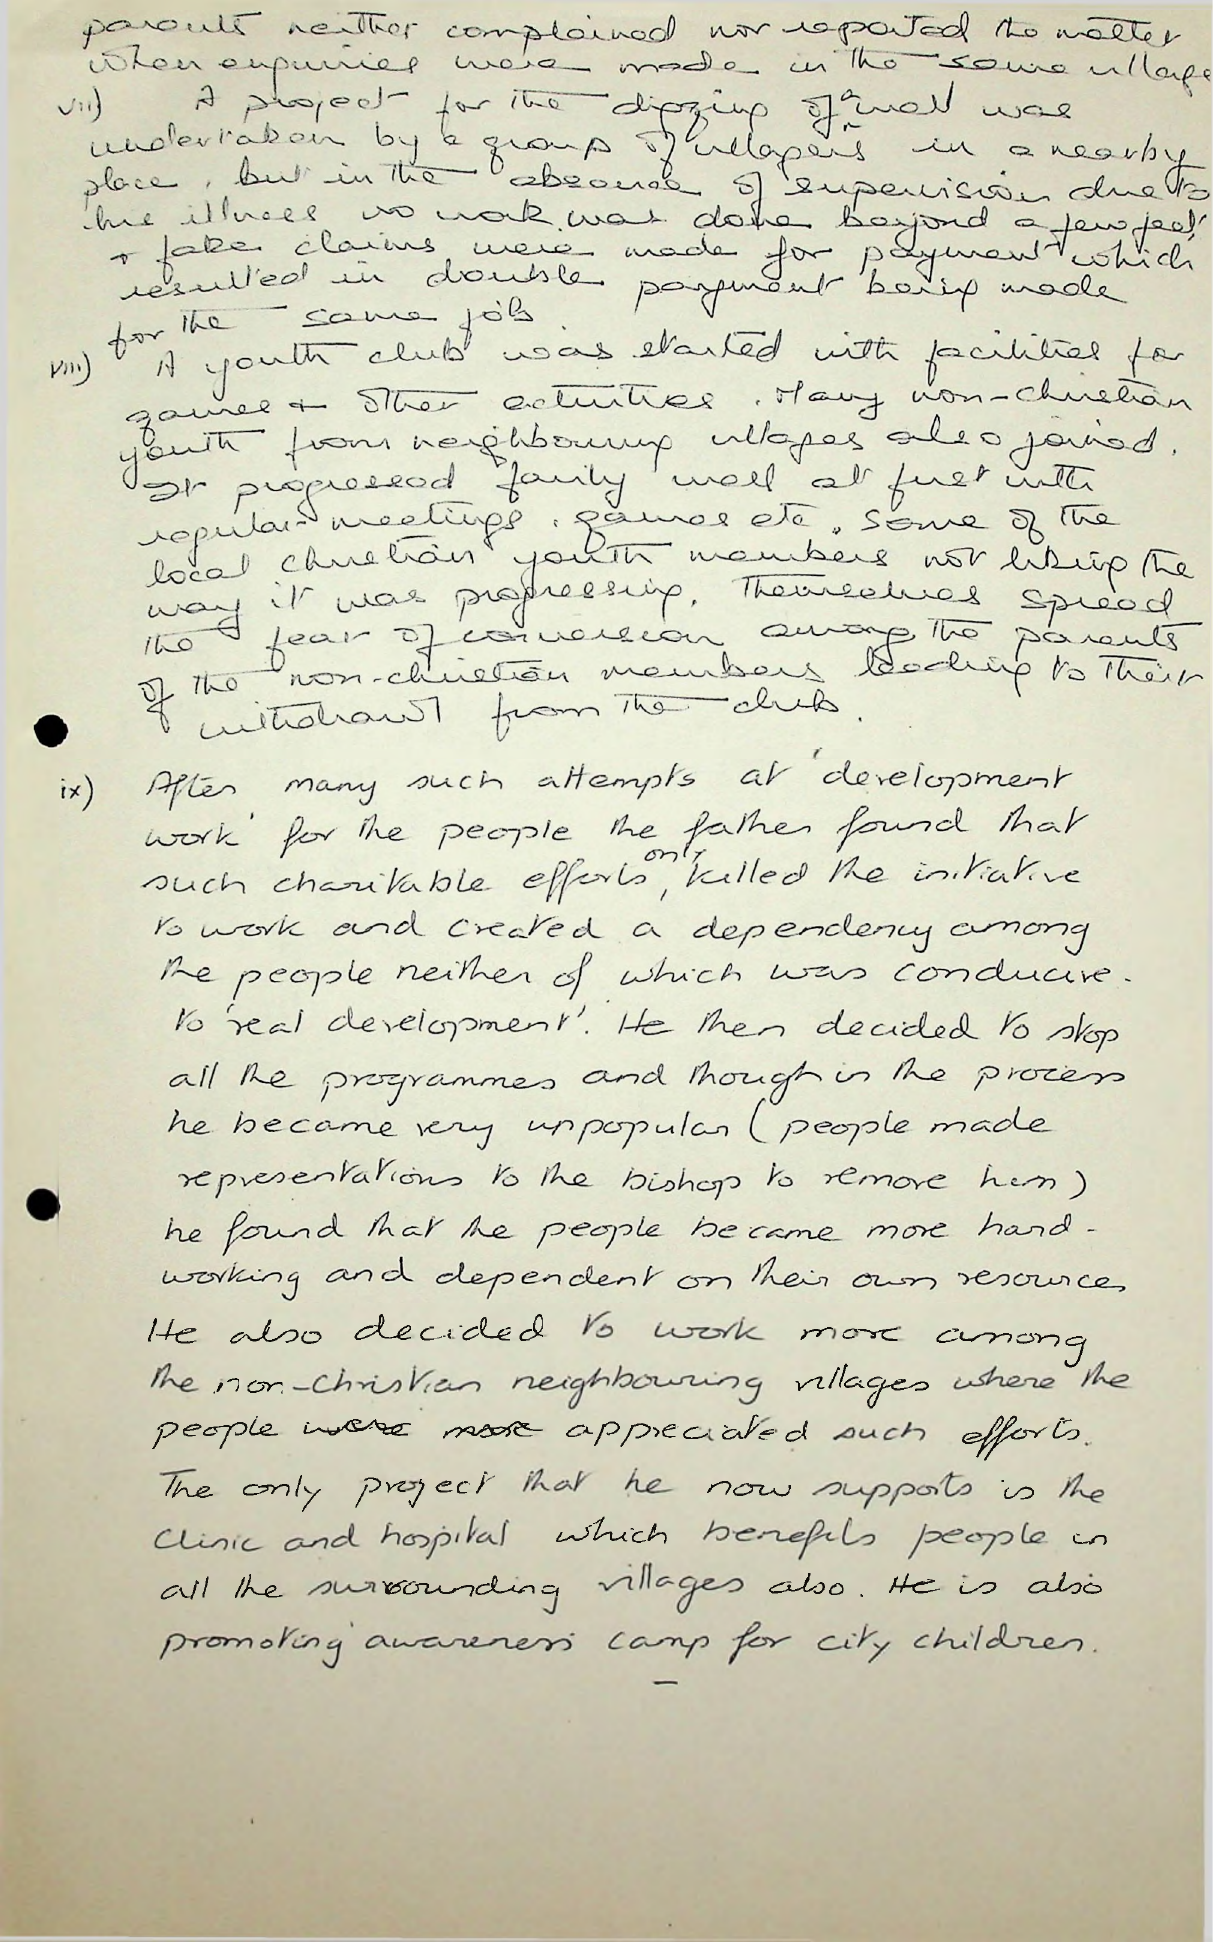 parents neither complained nor reported the matter
when enquiries were made in the same village
vii) A project for the digging of a well was
undertaken by a group of villagers in a nearby
place, but in the absence of supervision due to
his illness no work was done beyond a few feet
+ fake claims were made for payment which
resulted in double payment being made
for the same job.
viii) A youth club was started with facilities for
games + other activities. Many non-christian
youth from neighbouring villages also joined.
It progressed fairly well at first with
regular meetings, games etc. Some of the
local christian youth members not liking the
way it was progressing, themselves spread
the fear of conversion among the parents
of the non-christian members leading to their
withdrawl from the club.
ix) After many such attempts at 'development
work' for the people the father found that
such charitable efforts only killed the initiative
to work and created a dependency among
the people neither of which was conducive
to 'real development'. He then decided to stop
all the programmes and though in the process
he became very unpopular (people made
representations to the bishop to remove him)
he found that the people became more hard-
working and dependent on their own resources
He also decided to work more among
the non-Christian neighbouring villages where the
people were more appreciated such efforts.
The only project that he now supports is the
Clinic and hospital which benefits people in
all the surrounding villages also. He is also
promoting awareness camp for city children.